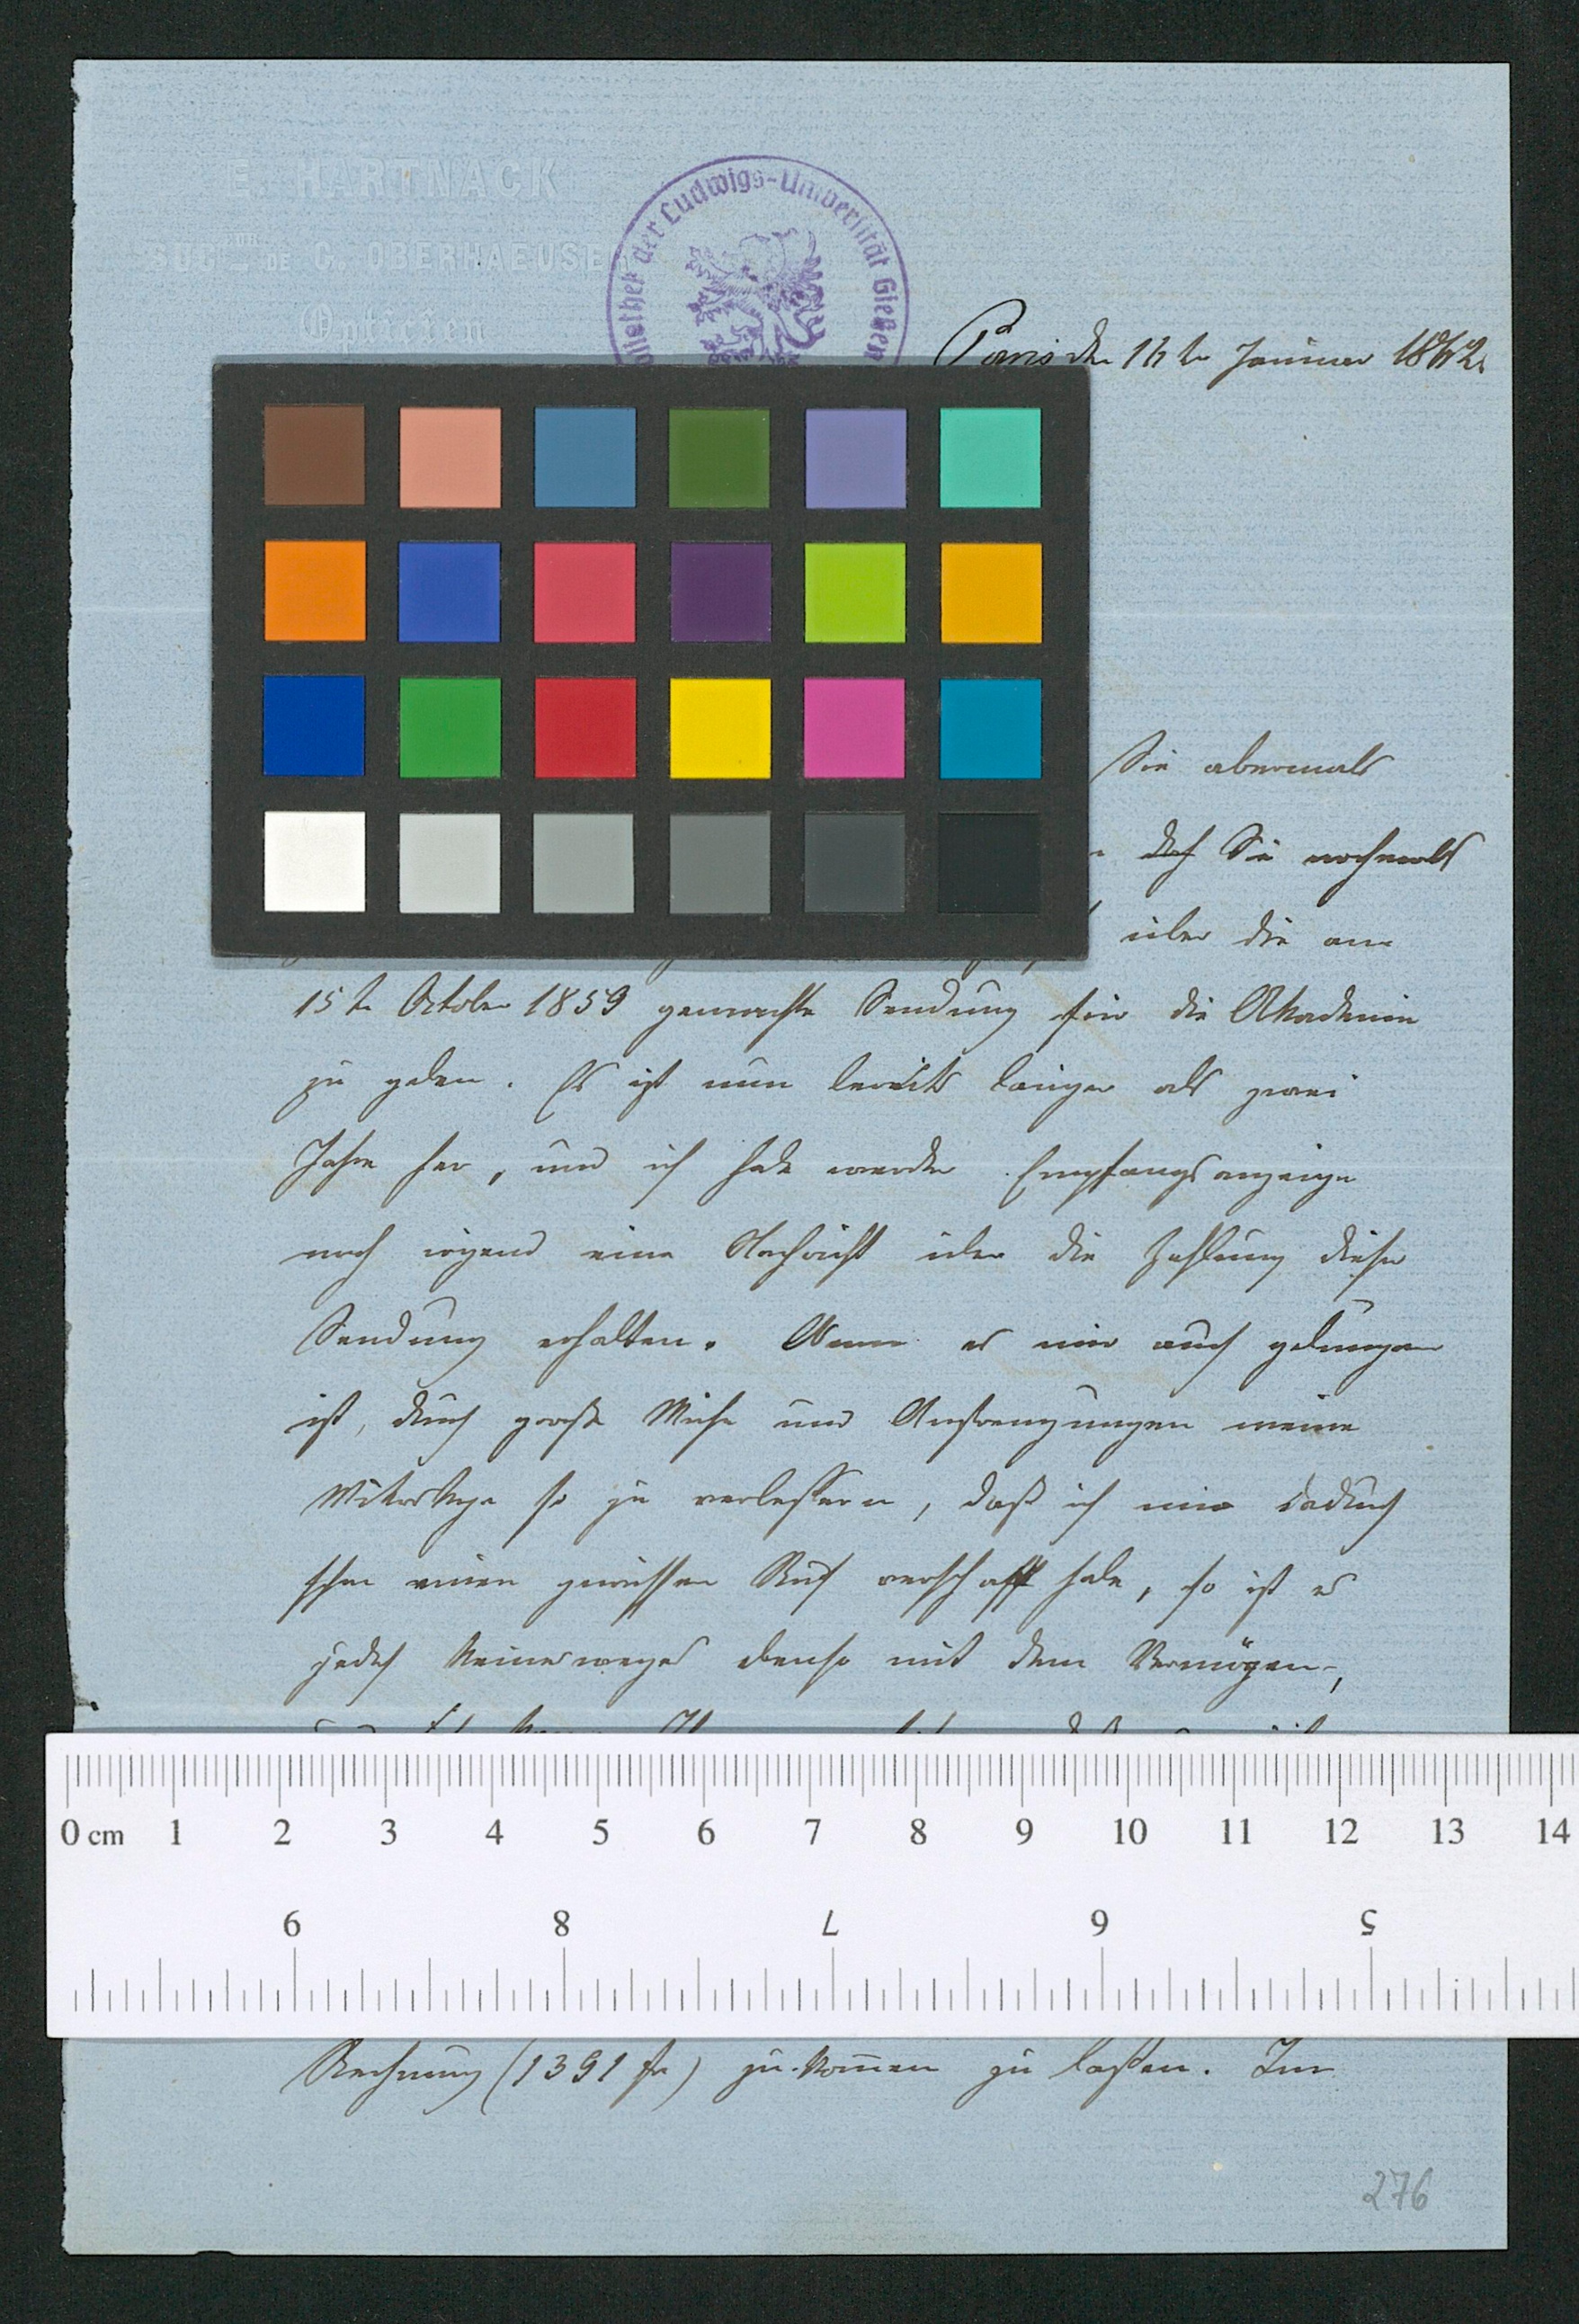 E. HARTNACK
SUCR DE G. OBERHAEUSER
Opticien
Bibliothek der Ludwigs-Universität Gießen
Paris den Januar 1862.
Sie abermals
doch Sie nochmals
über die am
15ten October 1859 gemachte Sendung für die Akademie
zu geben. Es ist nun bereits länger als zwei
Jahre her, und ich habe weder Empfangsanzeige
noch irgend eine Nachricht über die Zahlung dieser
Sendung erhalten. Wenn es mir auch gelungen
ist, durch große Mühe und Anstrengungen meine
Mikroskope so zu verbessern, daß ich mir dadurch
schon einen gewissen Ruf verschafft habe, so ist es
jedoch keinesweges ebenso mit dem Vermögen,
0 cm 1 2 3 4 5 6 7 8 9 10 11 12 13 14
9 8 7 6 5
Rechnung (1391 fr) zu kommen zu laßen. Im
276